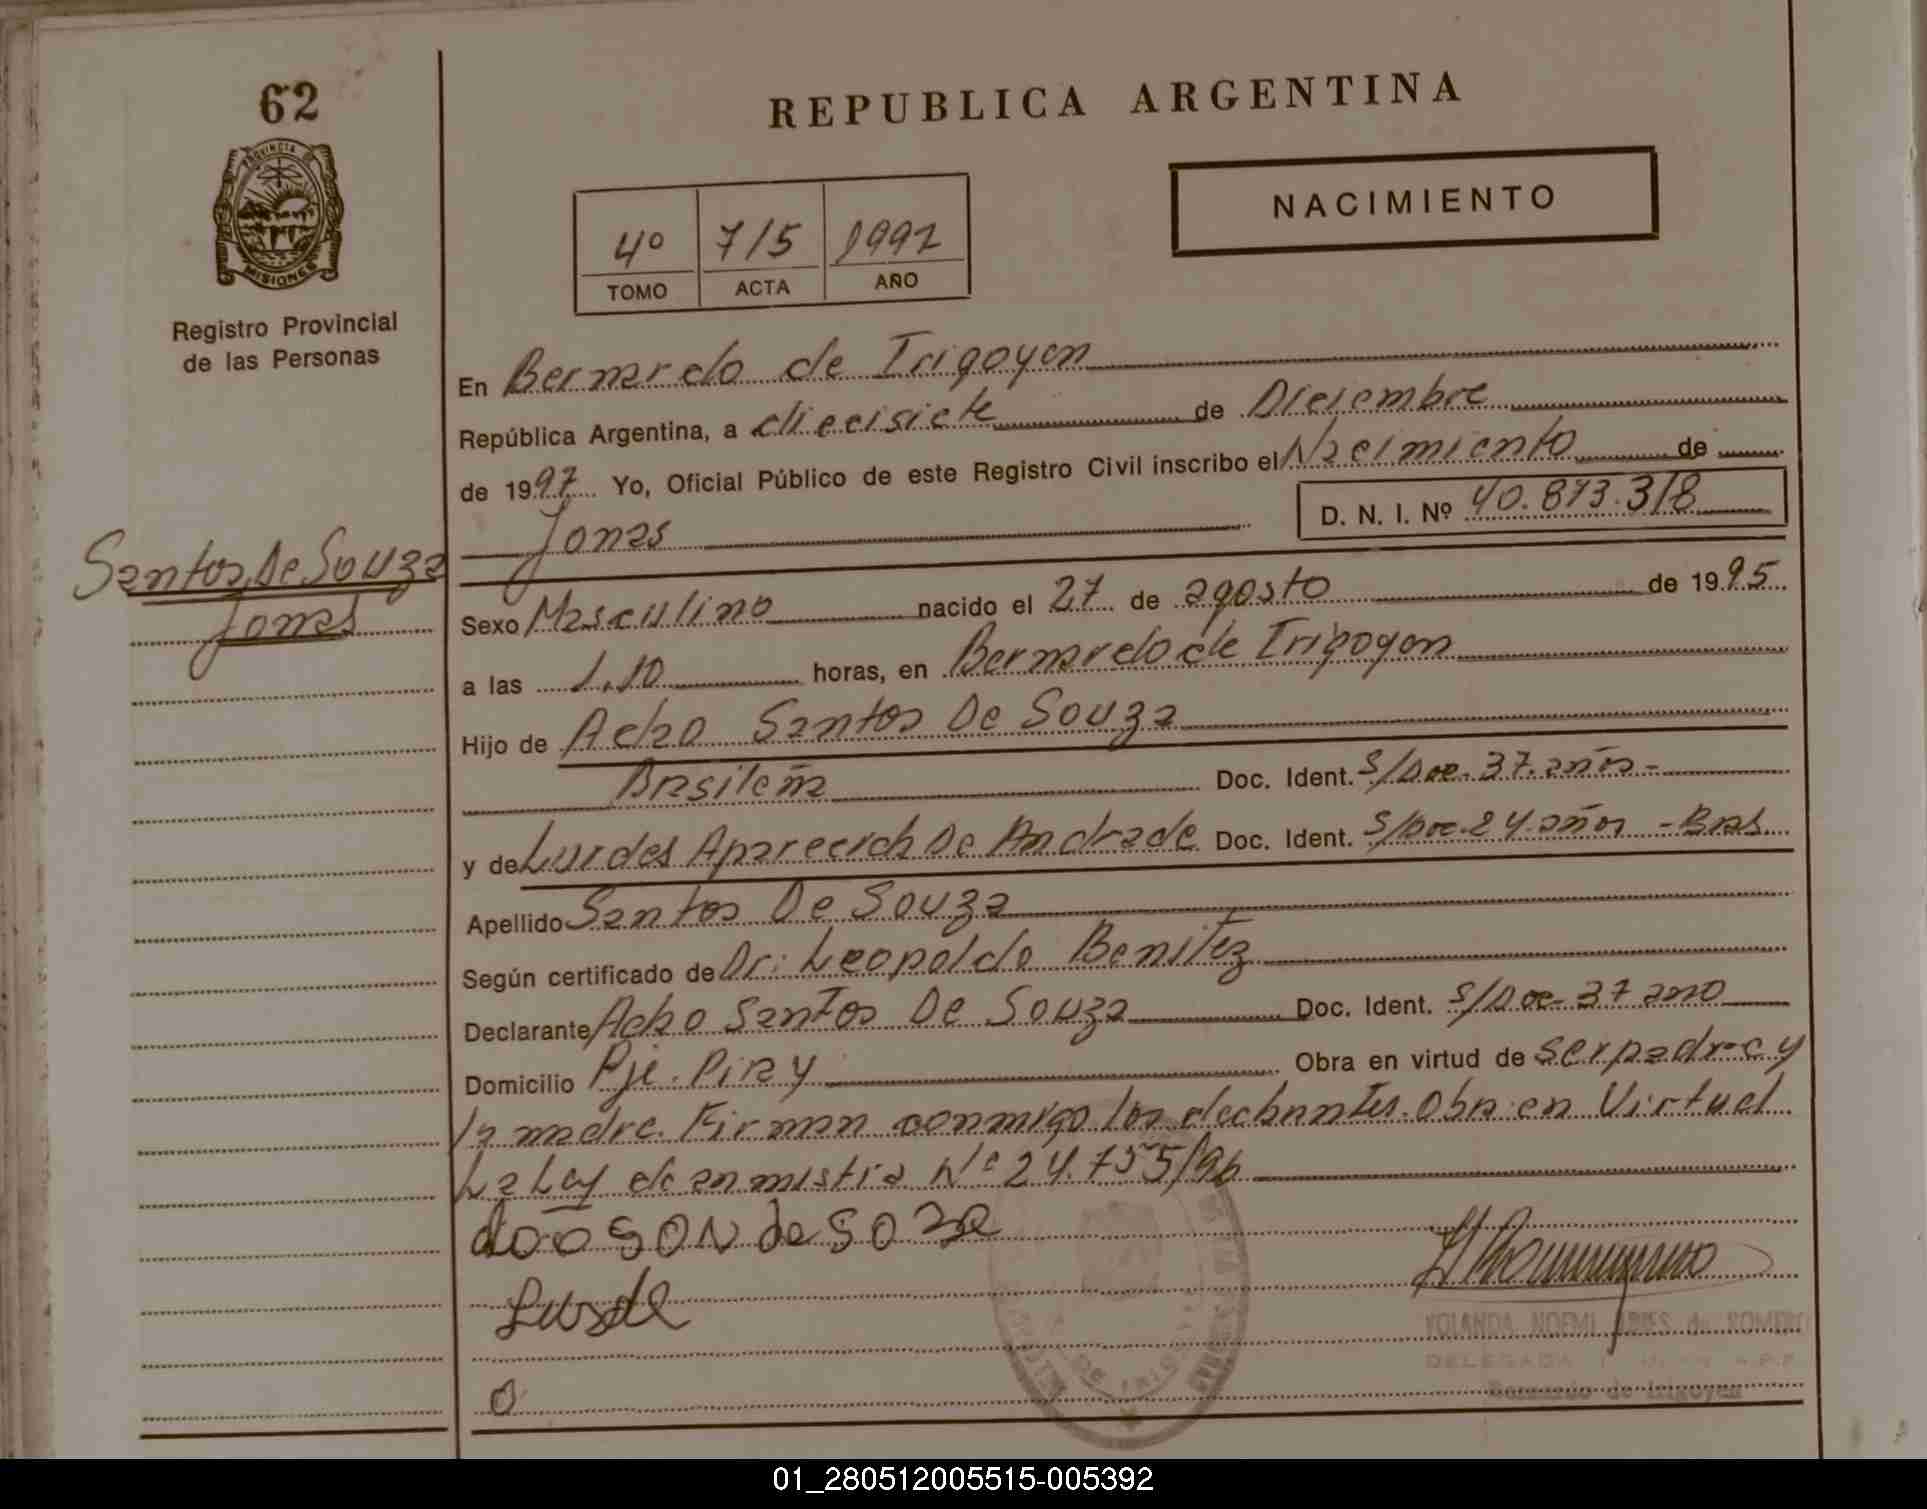 62
PROVINCIA DE
MISIONES
Registro Provincial
de las Personas
Santos De Souza
Jonas
REPUBLICA ARGENTINA
NACIMIENTO
4º 715 1997
TOMO ACTA AÑO
En Bernardo de Irigoyen
República Argentina, a diecisiete de Diciembre
de 1997 Yo, Oficial Público de este Registro Civil inscribo el Nacimiento de
Jonas D. N. I. Nº 40.873.318
Sexo Masculino nacido el 27 de agosto de 1995
a las 1.10 horas, en Bernardo de Irigoyen
Hijo de Santos De Souza
Brasileña Doc. Ident. S/Doc. 37 años-
y de Lurdes Aparecida De Andrade Doc. Ident. S/Doc. 24 años - Bras.
Apellido Santos De Souza
Según certificado de Dr: Leopoldo Benitez
Declarante Santos De Souza Doc. Ident. S/Doc- 37 ano
Domicilio Pje. Piray Obra en virtud de ser padre y
la madre. Firman conmigo los declarantes. Obra en Virtud
La Ley de anmistia Nº 24.755/96
de soza
YOLANDA NOEMI de ROMERO
DELEGADA
Bernardo de Irigoyen
01_280512005515-005392